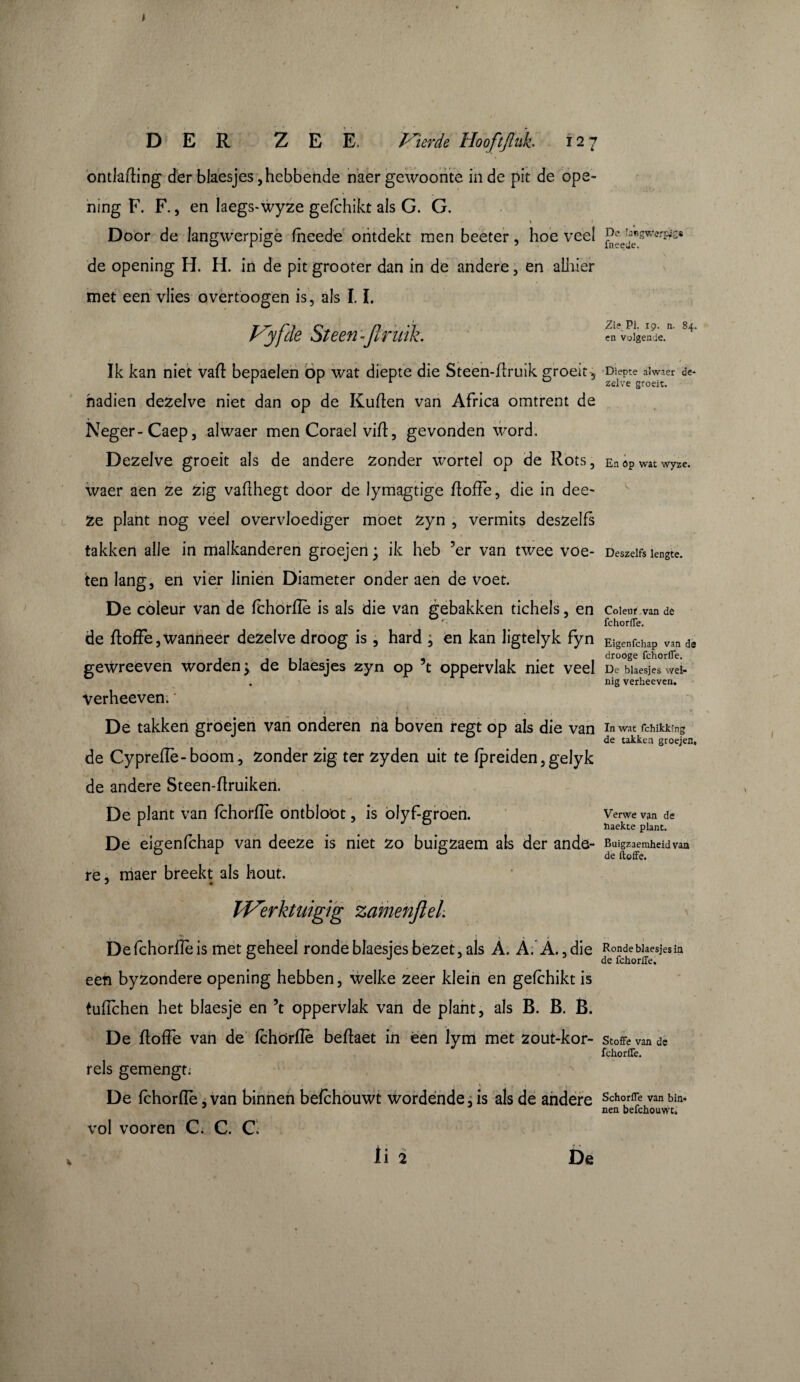 DER ZEE. Vierde Hooftſtuk. 127
ontlaſting der blaesjes, hebbende naer gewoonte in de pit de ope-
ning F. F., en laegs-wyze geſchikt als G. G.
Door de langwerpige ſneede ontdekt men beeter, hoe veel
De langwerpige
ſneede.
de opening H. H. in de pit grooter dan in de andere, en alhier
met een vlies overtoogen is, als I. I.
Vyfde Steen-ſtruik.
Zie Pl. 19. n. 84.
en volgende.
Ik kan niet vaſt bepaelen op wat diepte die Steen-ſtruik groeit,
Diepte alwaer de-
zelve groeit.
nadien dezelve niet dan op de Kuſten van Africa omtrent de
Neger-Caep, alwaer men Corael viſt, gevonden word.
Dezelve groeit als de andere zonder wortel op de Rots,
En op wat wyze.
waer aen ze zig vaſthegt door de lymagtige ſtoffe, die in dee-
ze plant nog veel overvloediger moet zyn, vermits deszelfs
takken alle in malkanderen groejen; ik heb ’er van twee voe-
Deszelfs lengte.
ten lang, en vier linien Diameter onder aen de voet.
De coleur van de ſchorſſe is als die van gebakken tichels, en
Coleur van de
ſchorſſe.
de ſtoffe, wanneer dezelve droog is, hard, en kan ligtelyk fyn
Eigenſchap van de
drooge ſchorſſe.
gewreeven worden; de blaesjes zyn op ’t oppervlak niet veel
De blaesjes wei-
nig verheeven.
verheeven.
De takken groejen van onderen na boven regt op als die van
In wat ſchikking
de takken groejen.
de Cypreſſe-boom, zonder zig ter zyden uit te ſpreiden, gelyk
de andere Steen-ſtruiken.
De plant van ſchorſſe ontbloot, is olyf-groen.
Verwe van de
naekte plant.
De eigenſchap van deeze is niet zo buigzaem als der ande-
Buigzaemheid van
de ſtoffe.
re, maer breekt als hout.
Werktuigig zamenſtel.
De ſchorſſe is met geheel ronde blaesjes bezet, als A. A. A., die
Ronde blaesjes in
de ſchorſſe.
een byzondere opening hebben, welke zeer klein en geſchikt is
tuſſchen het blaesje en ’t oppervlak van de plant, als B. B. B.
De ſtoffe van de ſchorſſe beſtaet in een lym met zout-kor-
Stoffe van de
ſchorſſe.
rels gemengt.
De ſchorſſe, van binnen beſchouwt wordende, is als de andere
Schorſſe van bin-
nen beſchouwt.
vol vooren C. C. C.
Ii 2 De